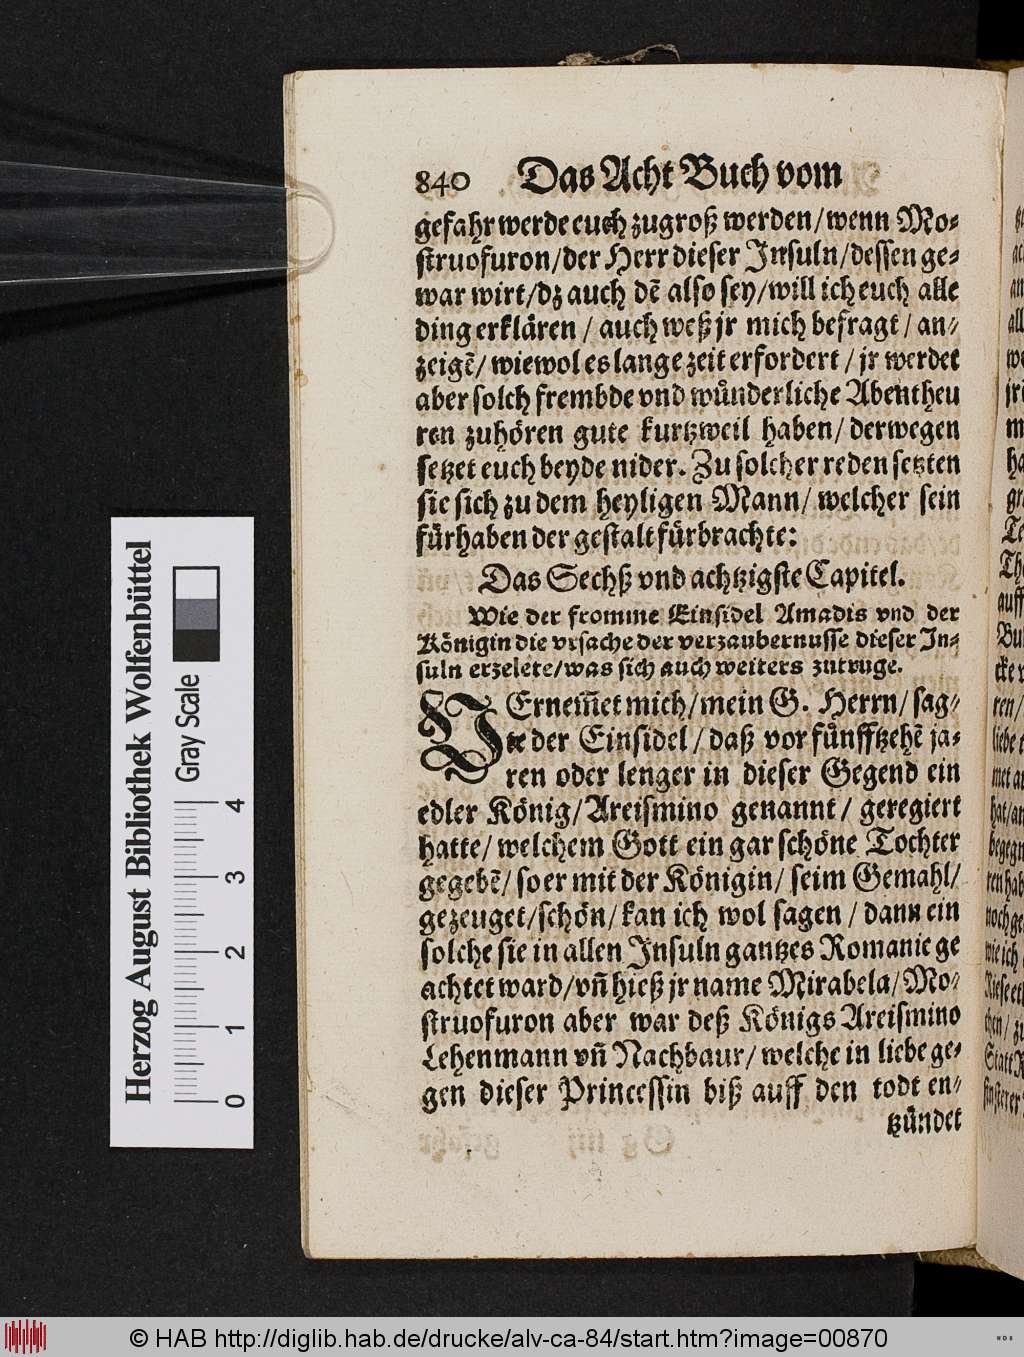 840 Das Acht Buch vom
gefahr werde euch zugroß werden/wenn Mo⸗
struofuron/der Herr dieser Insuln/dessen ge⸗
war wirt/dz auch dē also sey/will ich euch alle
ding erklären / auch weß jr mich befragt / an⸗
zeigē/ wiewol es lange zeit erfordert / jr werdet
aber solch frembde vnd wůnderliche Abentheu
ren zuhören gute kurtzweil haben/ derwegen
setzet euch beyde nider. Zu solcher reden setzten
sie sich zu dem heyligen Mann/ welcher sein
fürhaben der gestalt fürbrachte:
Das Sechß vnd achtzigste Capitel.
Wie der fromme Einsidel Amadis vnd der
Königin die vrsache der verzaubernusse dieser In⸗
suln erzelete/was sich auch weiters zutruge.
VErnem̃et mich/mein G. Herrn/ sag⸗
te der Einsidel / daß vor fůnfftzehē ja⸗
ren oder lenger in dieser Gegend ein
edler König/ Areismino genannt/ geregiert
hatte/ welchem Gott ein gar schöne Tochter
gegebē/ so er mit der Königin/ seim Gemahl/
gezeuget/schön/ kan ich wol sagen / dann ein
solche sie in allen Insuln gantzes Romanie ge
achtet ward/vn̄ hieß jr name Mirabela/ Mo⸗
struofuron aber war deß Königs Areismino
Lehenmann vn̄ Nachbaur/ welche in liebe ge⸗
gen dieser Princessin biß auff den todt en⸗
tzündet
Herzog August Bibliothek Wolfenbüttel
Gray Scale
0 1 2 3 4
© HAB http://diglib.hab.de/drucke/alv-ca-84/start.htm?image=00870